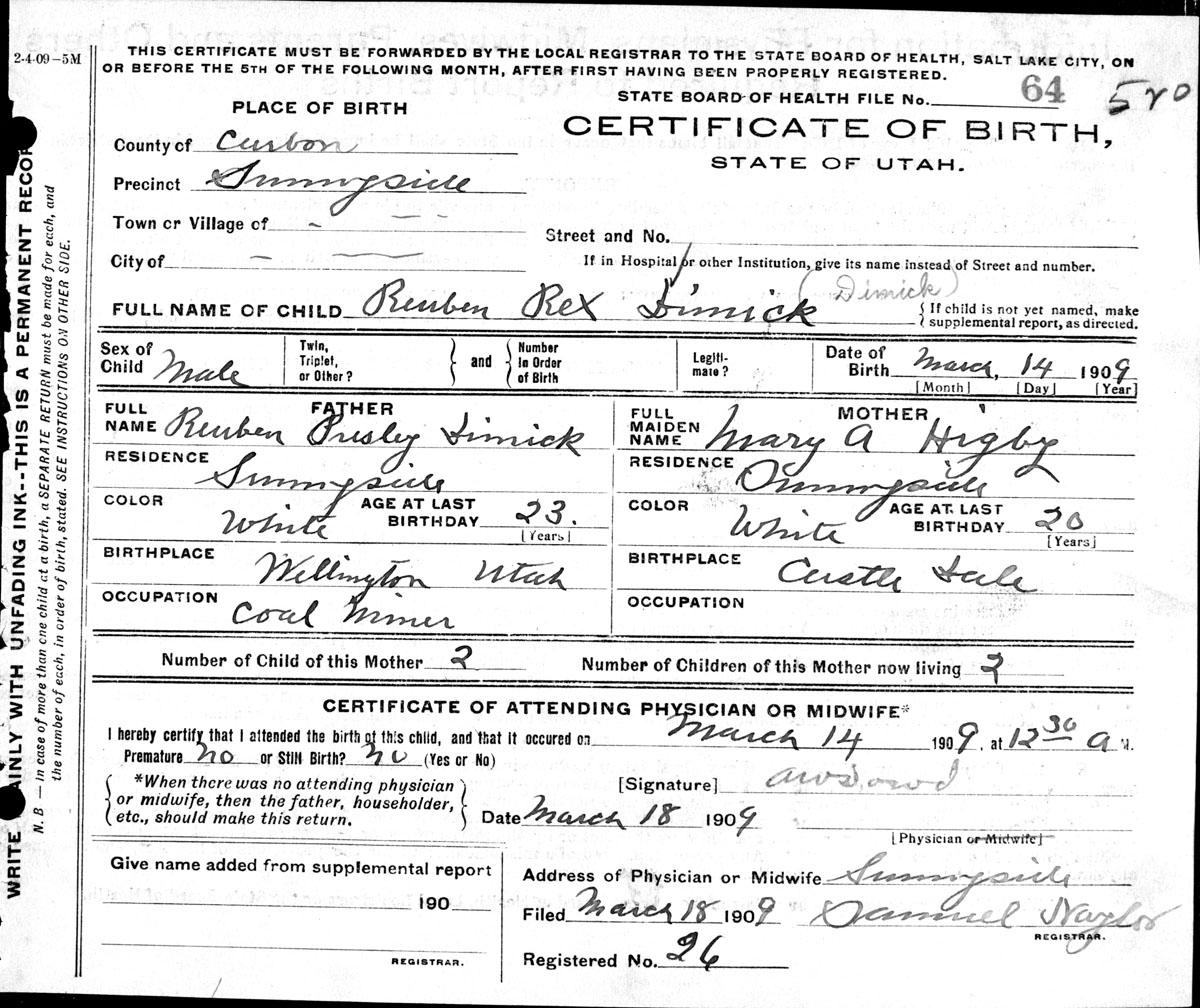 2-4-09-5M
THIS CERTIFICATE MUST BE FORWARDED BY THE LOCAL REGISTRAR TO THE STATE BOARD OF HEALTH, SALT LAKE CITY, ON
OR BEFORE THE 5TH OF THE FOLLOWING MONTH, AFTER FIRST HAVING BEEN PROPERLY REGISTERED.
STATE BOARD OF HEALTH FILE No. 64 520
PLACE OF BIRTH
CERTIFICATE OF BIRTH,
STATE OF UTAH.
County of Carbon
Precinct Sunnyside
Town or Village of - - -
City of - -
Street and No.
If in Hospital or other Institution, give its name instead of Street and number.
FULL NAME OF CHILD Reuben Rex Dimick (Dimick)
{ If child is not yet named, make
supplemental report, as directed.
Sex of Child Male
Twin, Triplet, or Other? } and { Number in Order of Birth
Legiti-mate?
Date of Birth March, 14 1909
[Month] [Day] [Year]
FATHER
FULL NAME Reuben Presley Dimick
RESIDENCE Sunnyside
COLOR White AGE AT LAST BIRTHDAY 23.
[Years]
BIRTHPLACE Wellington Utah
OCCUPATION Coal Miner
MOTHER
FULL MAIDEN NAME Mary A Higby
RESIDENCE Sunnyside
COLOR White AGE AT LAST BIRTHDAY 20
[Years]
BIRTHPLACE Castle Dale
OCCUPATION
Number of Child of this Mother 2 Number of Children of this Mother now living 2
CERTIFICATE OF ATTENDING PHYSICIAN OR MIDWIFE*
I hereby certify that I attended the birth of this child, and that it occured on March 14 1909, at 12 30 a M.
Premature no or Still Birth? no (Yes or No)
*When there was no attending physician
or midwife, then the father, householder,
etc., should make this return.
[Signature]
Date March 18 1909
[Physician or Midwife]
Give name added from supplemental report
190
REGISTRAR.
Address of Physician or Midwife Sunnyside
Filed March 18 1909 Samuel Naylor
REGISTRAR.
Registered No. 26
WRITE PLAINLY WITH UNFADING INK--THIS IS A PERMANENT RECORD
N. B — In case of more than one child at a birth, a SEPARATE RETURN must be made for each, and
the number of each, in order of birth, stated. SEE INSTRUCTIONS ON OTHER SIDE.